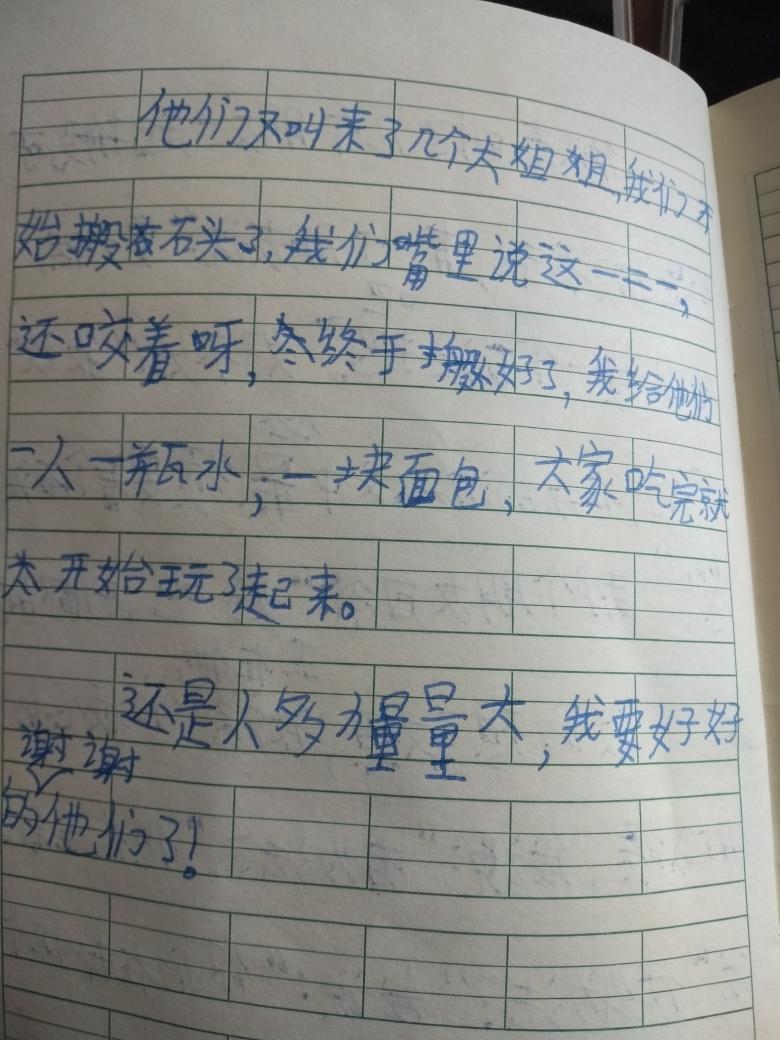 他们又叫来了几个大姐姐,我们开
始搬石头了,我们嘴里说这一二一,
还咬着呀,终于搬好了,我给他们
一人一瓶水,一块面包,大家吃完就
开始玩了起来。
还是人多力量大,我要好好
谢谢
的他们了!